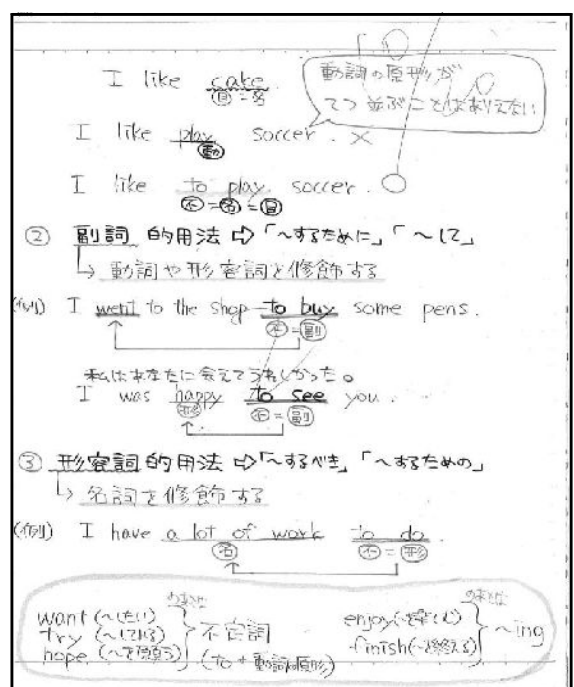 I like cake.
目=名
動詞の原形が
2つ並ぶことはありえない
I like play soccer. ×
動
I like to play soccer. ○
不=名=目
② 副詞的用法 ⇨「~するために」「~して」
↳ 動詞や形容詞を修飾する
(例) I went to the shop to buy some pens.
不=副
私はあなたに会えてうれしかった。
I was happy to see you.
形 不=副
③ 形容詞的用法 ⇨「~するべき」「~するための」
↳ 名詞を修飾する
(例) I have a lot of work to do.
名 不=形
want (~したい)
try (~してみる)
hope (~を願う)
のあとは
不定詞
(to+動詞の原形)
enjoy(~を楽しむ)
finish(~を終える)
のあとは
~ing